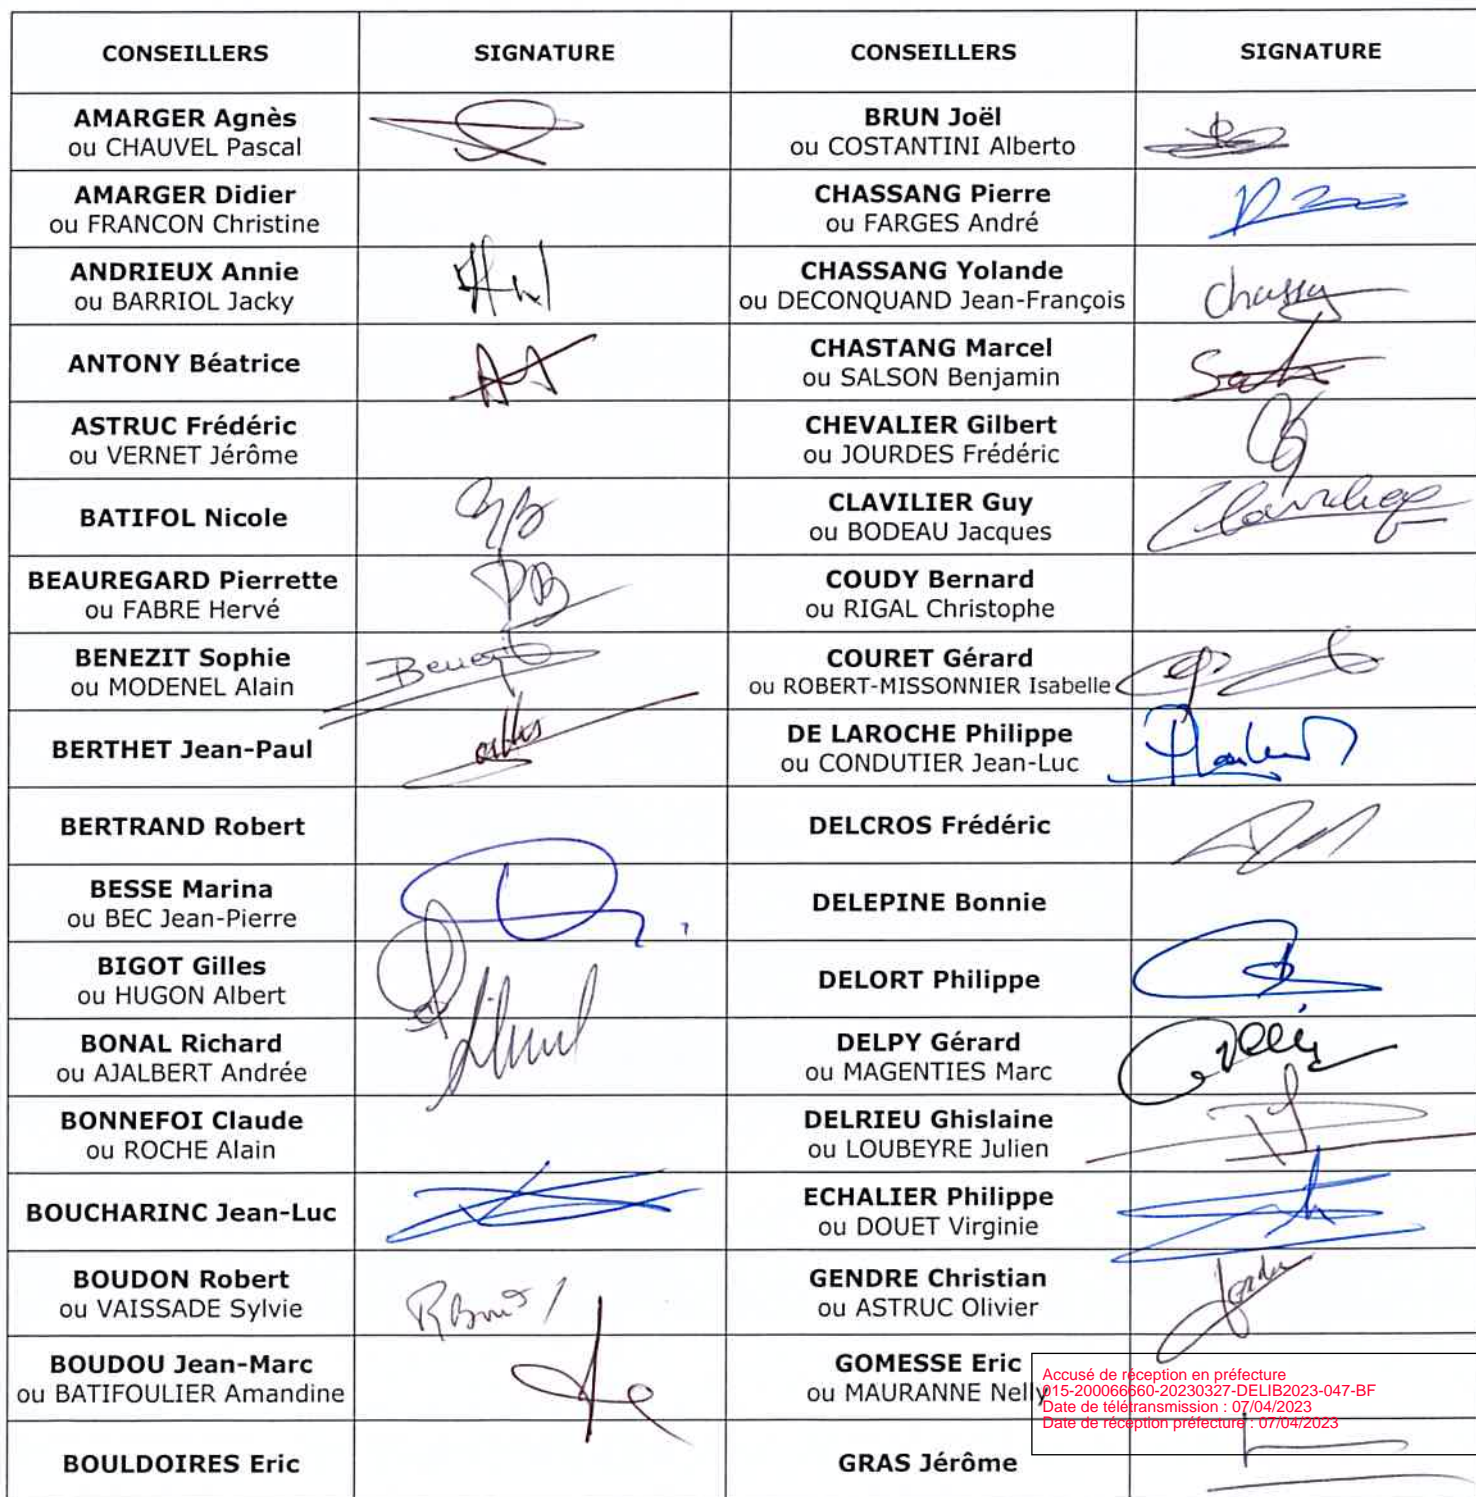 CONSEILLERS SIGNATURE CONSEILLERS SIGNATURE
AMARGER Agnès
ou CHAUVEL Pascal
BRUN Joël
ou COSTANTINI Alberto
AMARGER Didier
ou FRANCON Christine
CHASSANG Pierre
ou FARGES André
ANDRIEUX Annie
ou BARRIOL Jacky
CHASSANG Yolande
ou DECONQUAND Jean-François
ANTONY Béatrice
CHASTANG Marcel
ou SALSON Benjamin
ASTRUC Frédéric
ou VERNET Jérôme
CHEVALIER Gilbert
ou JOURDES Frédéric
BATIFOL Nicole
CLAVILIER Guy
ou BODEAU Jacques
BEAUREGARD Pierrette
ou FABRE Hervé
COUDY Bernard
ou RIGAL Christophe
BENEZIT Sophie
ou MODENEL Alain
COURET Gérard
ou ROBERT-MISSONNIER Isabelle
BERTHET Jean-Paul
DE LAROCHE Philippe
ou CONDUTIER Jean-Luc
BERTRAND Robert
DELCROS Frédéric
BESSE Marina
ou BEC Jean-Pierre
DELEPINE Bonnie
BIGOT Gilles
ou HUGON Albert
DELORT Philippe
BONAL Richard
ou AJALBERT Andrée
DELPY Gérard
ou MAGENTIES Marc
BONNEFOI Claude
ou ROCHE Alain
DELRIEU Ghislaine
ou LOUBEYRE Julien
BOUCHARINC Jean-Luc
ECHALIER Philippe
ou DOUET Virginie
BOUDON Robert
ou VAISSADE Sylvie
GENDRE Christian
ou ASTRUC Olivier
BOUDOU Jean-Marc
ou BATIFOULIER Amandine
GOMESSE Eric
ou MAURANNE Nelly
Accusé de réception en préfecture
015-200066660-20230327-DELIB2023-047-BF
Date de télétransmission : 07/04/2023
Date de réception préfecture : 07/04/2023
BOULDOIRES Eric
GRAS Jérôme